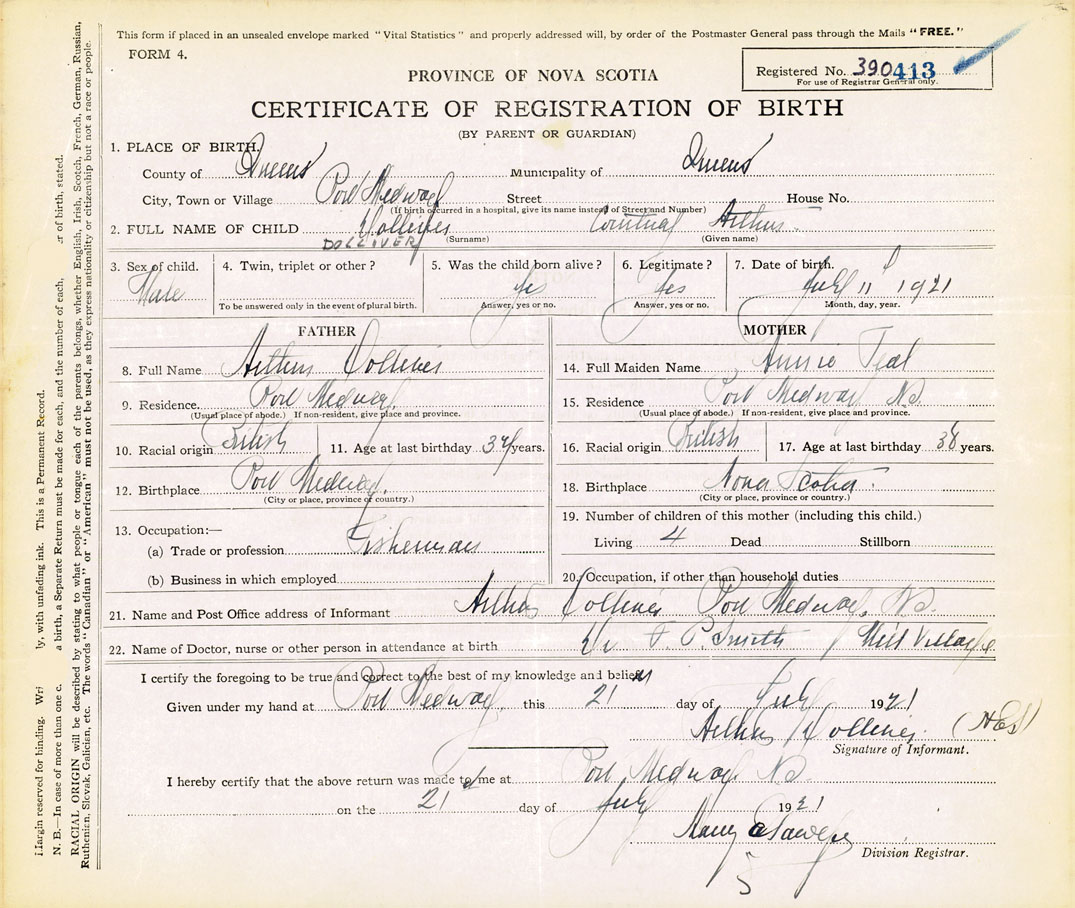 This form if placed in an unsealed envelope marked "Vital Statistics" and properly addressed will, by order of the Postmaster General pass through the Mails "FREE."
FORM 4.
Registered No. 390413
For use of Registrar General only.
PROVINCE OF NOVA SCOTIA
CERTIFICATE OF REGISTRATION OF BIRTH
(BY PARENT OR GUARDIAN)
1. PLACE OF BIRTH.
County of Queens Municipality of Queens
City, Town or Village Port Medway Street House No.
(If birth occurred in a hospital, give its name instead of Street and Number)
2. FULL NAME OF CHILD Dolliver Arthur
DOLLIVER (Surname) (Given name)
3. Sex of child. 4. Twin, triplet or other? 5. Was the child born alive? 6. Legitimate? 7. Date of birth.
Male Yes Yes July 11 1921
To be answered only in the event of plural birth. Answer, yes or no. Answer, yes or no. Month, day, year.
FATHER
8. Full Name Arthur Dolliver
9. Residence Port Medway
(Usual place of abode.) If non-resident, give place and province.
10. Racial origin British 11. Age at last birthday years.
12. Birthplace Port Medway
(City or place, province or country.)
13. Occupation:—
(a) Trade or profession Fisherman
(b) Business in which employed
MOTHER
14. Full Maiden Name Annie Teal
15. Residence Port Medway NS.
(Usual place of abode.) If non-resident, give place and province.
16. Racial origin British 17. Age at last birthday 38 years.
18. Birthplace Nova Scotia.
(City or place, province or country.)
19. Number of children of this mother (including this child.)
Living 4 Dead Stillborn
20. Occupation, if other than household duties
21. Name and Post Office address of Informant Arthur Dolliver Port Medway, NS.
22. Name of Doctor, nurse or other person in attendance at birth Dr F. P. Smith Mill Village
I certify the foregoing to be true and correct to the best of my knowledge and belief
Given under my hand at Port Medway, this 21 day of July 1921
Arthur Dolliver
Signature of Informant.
I hereby certify that the above return was made to me at Port Medway NS
on the 21 day of July 1921
Division Registrar.
5
Margin reserved for binding. ly, with unfading ink. This is a Permanent Record.
N. B.—In case of more than one c a birth, a Separate Return must be made for each, and the number of each, er of birth, stated.
RACIAL ORIGIN will be described by stating to what people or tongue each of the parents belongs, whether English, Irish, Scotch, French, German, Russian,
Ruthenian, Slovak, Galician, etc. The words "Canadian" or "American" must not be used, as they express nationality or citizenship but not a race or people.